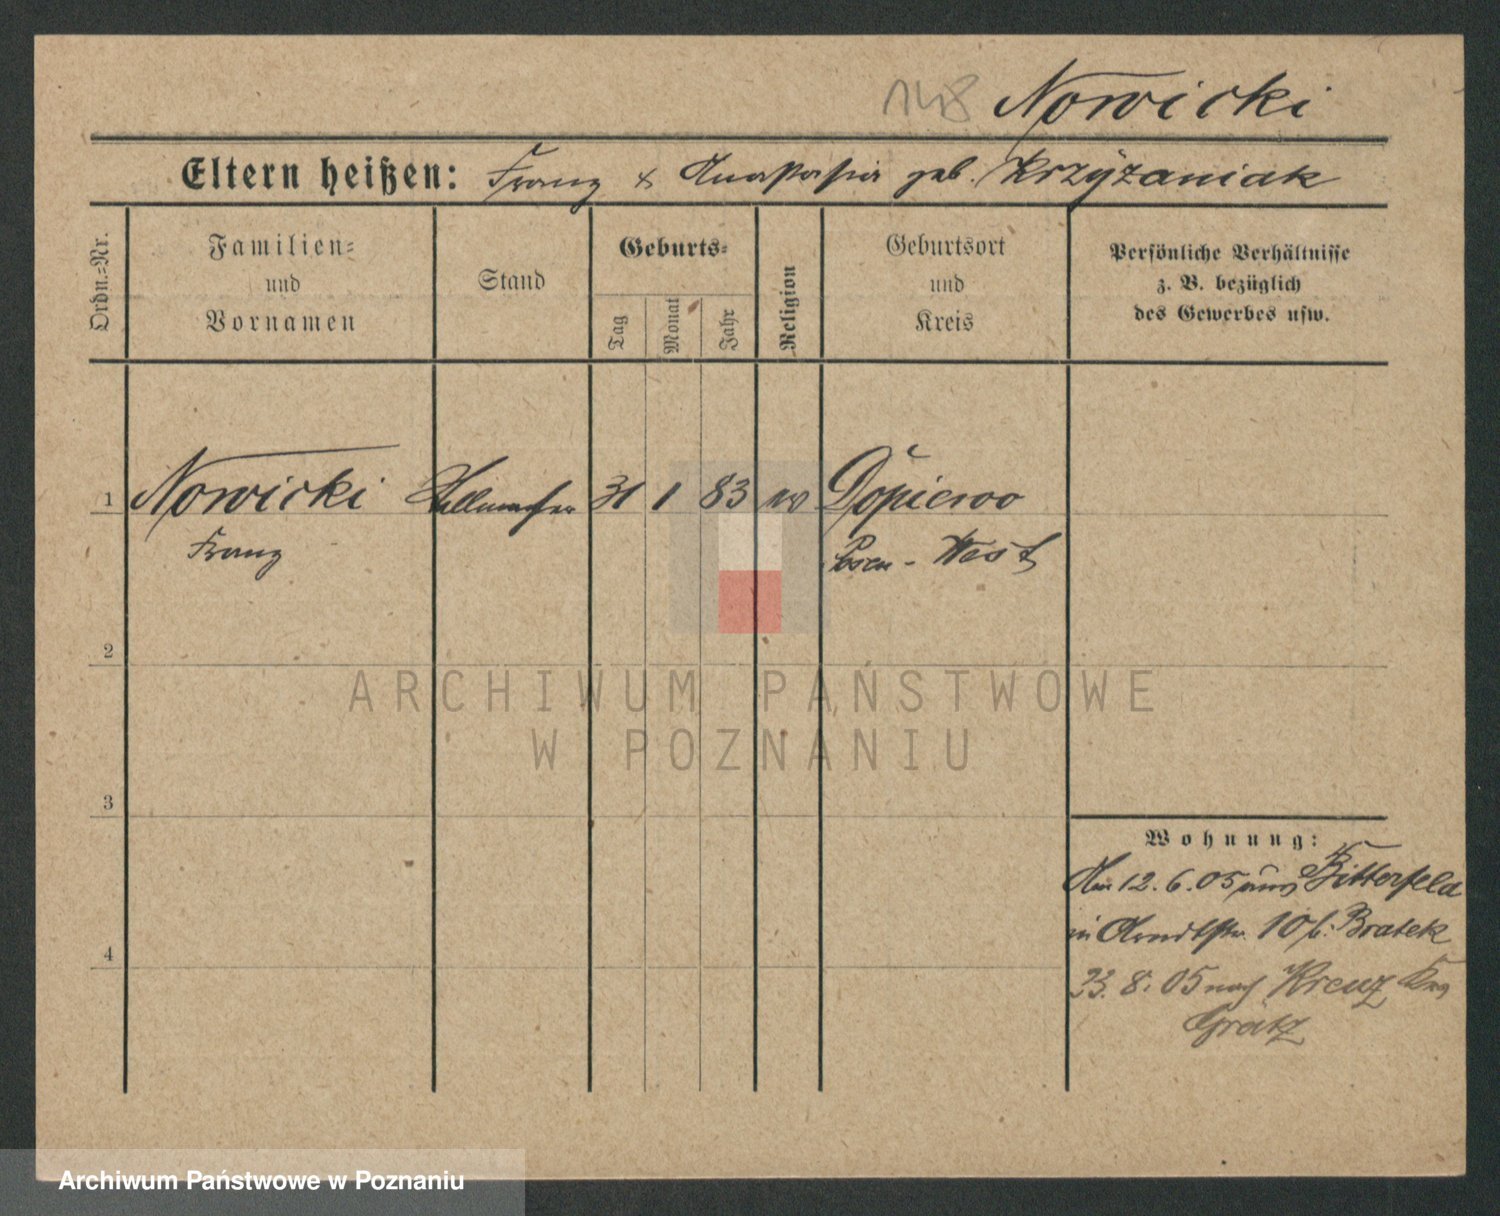 148 Nowicki
Eltern heißen: Franz & Anastasia geb. Krzyżaniak
Ordn.=Nr.
Familien=
und
Vornamen
Stand
Geburts=
Tag
Monat
Jahr
Religion
Geburtsort
und
Kreis
Persönliche Verhältnisse
z. B. bezüglich
des Gewerbes usw.
1 Nowicki Stellmacher 31 1 83 Dopiewo
Franz Posen - West
2
ARCHIWUM PAŃSTWOWE
W POZNANIU
3
Wohnung:
Am 12.6.05 aus Bitterfeld
in Arndtstr. 10 b. Bratek
4
23.8.05 nach Kreuz Krs
Grätz
Archiwum Państwowe w Poznaniu